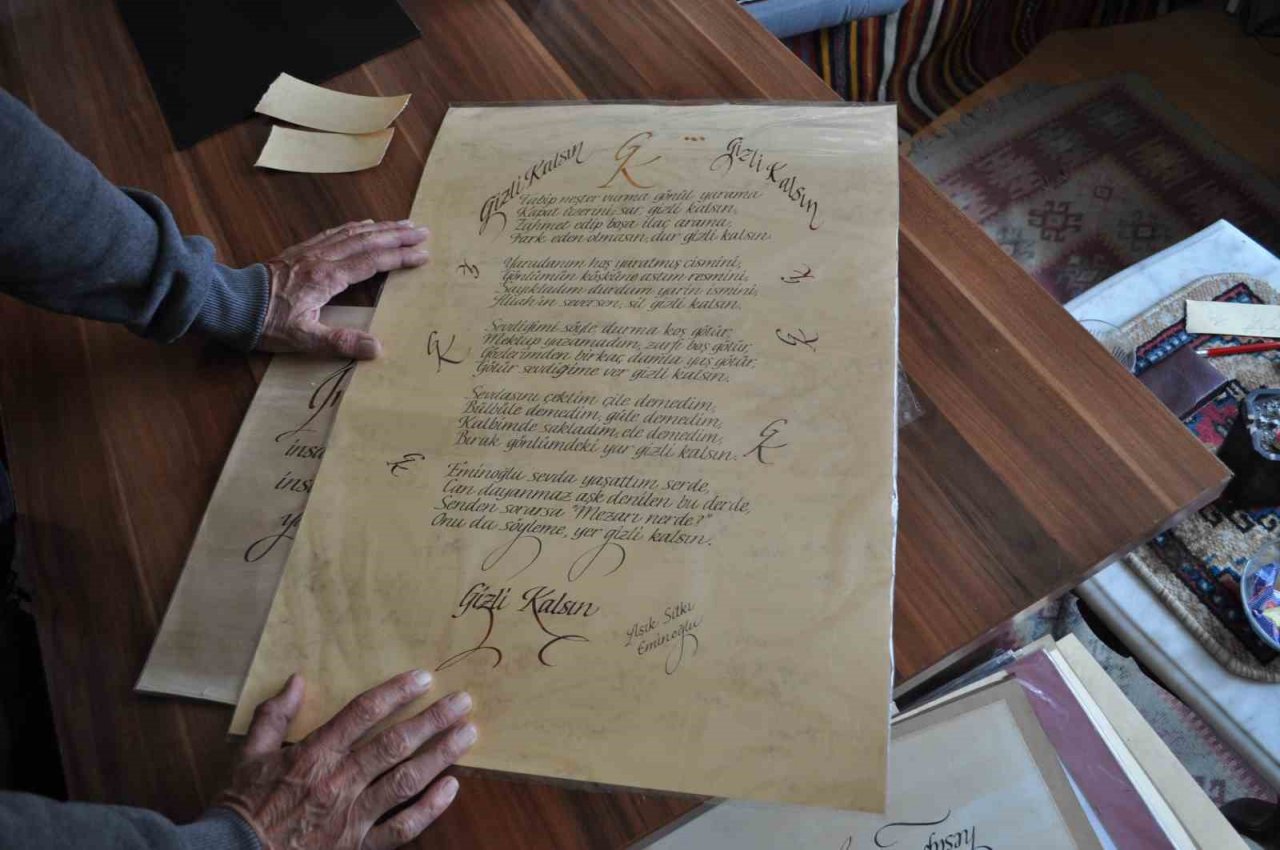 Gizli Kalsın GK ... Gizli Kalsın
Tabip neşter vurma gönül yarama
Kapat üzerini sar, gizli kalsın,
Zahmet edip boşa ilaç arama,
Fark eden olmasın, dur gizli kalsın.
Yaradanım hoş yaratmış cismini,
Gönlümün köşküne astım resmini,
Sayıkladım durdum yarin ismini,
Allah'ın seversen, sil gizli kalsın.
GK
GK
Sevdiğimi söyle durma koş götür,
Mektup yazamadım, zarfı boş götür,
Gözlerimden birkaç damla yaş götür,
Götür sevdiğime ver gizli kalsın.
GK
GK
Sevdasını çektim çile demedim,
Bülbüle demedim, güle demedim,
Kalbimde sakladım, ele demedim,
Bırak gönlümdeki yar gizli kalsın.
GK
GK
Eminoğlu sevda yaşattım serde,
Can dayanmaz aşk denilen bu derde,
Senden sorarsa "Mezarı nerde?"
Onu da söyleme, yer gizli kalsın.
Gizli Kalsın
Aşık Sıtkı
Eminoğlu